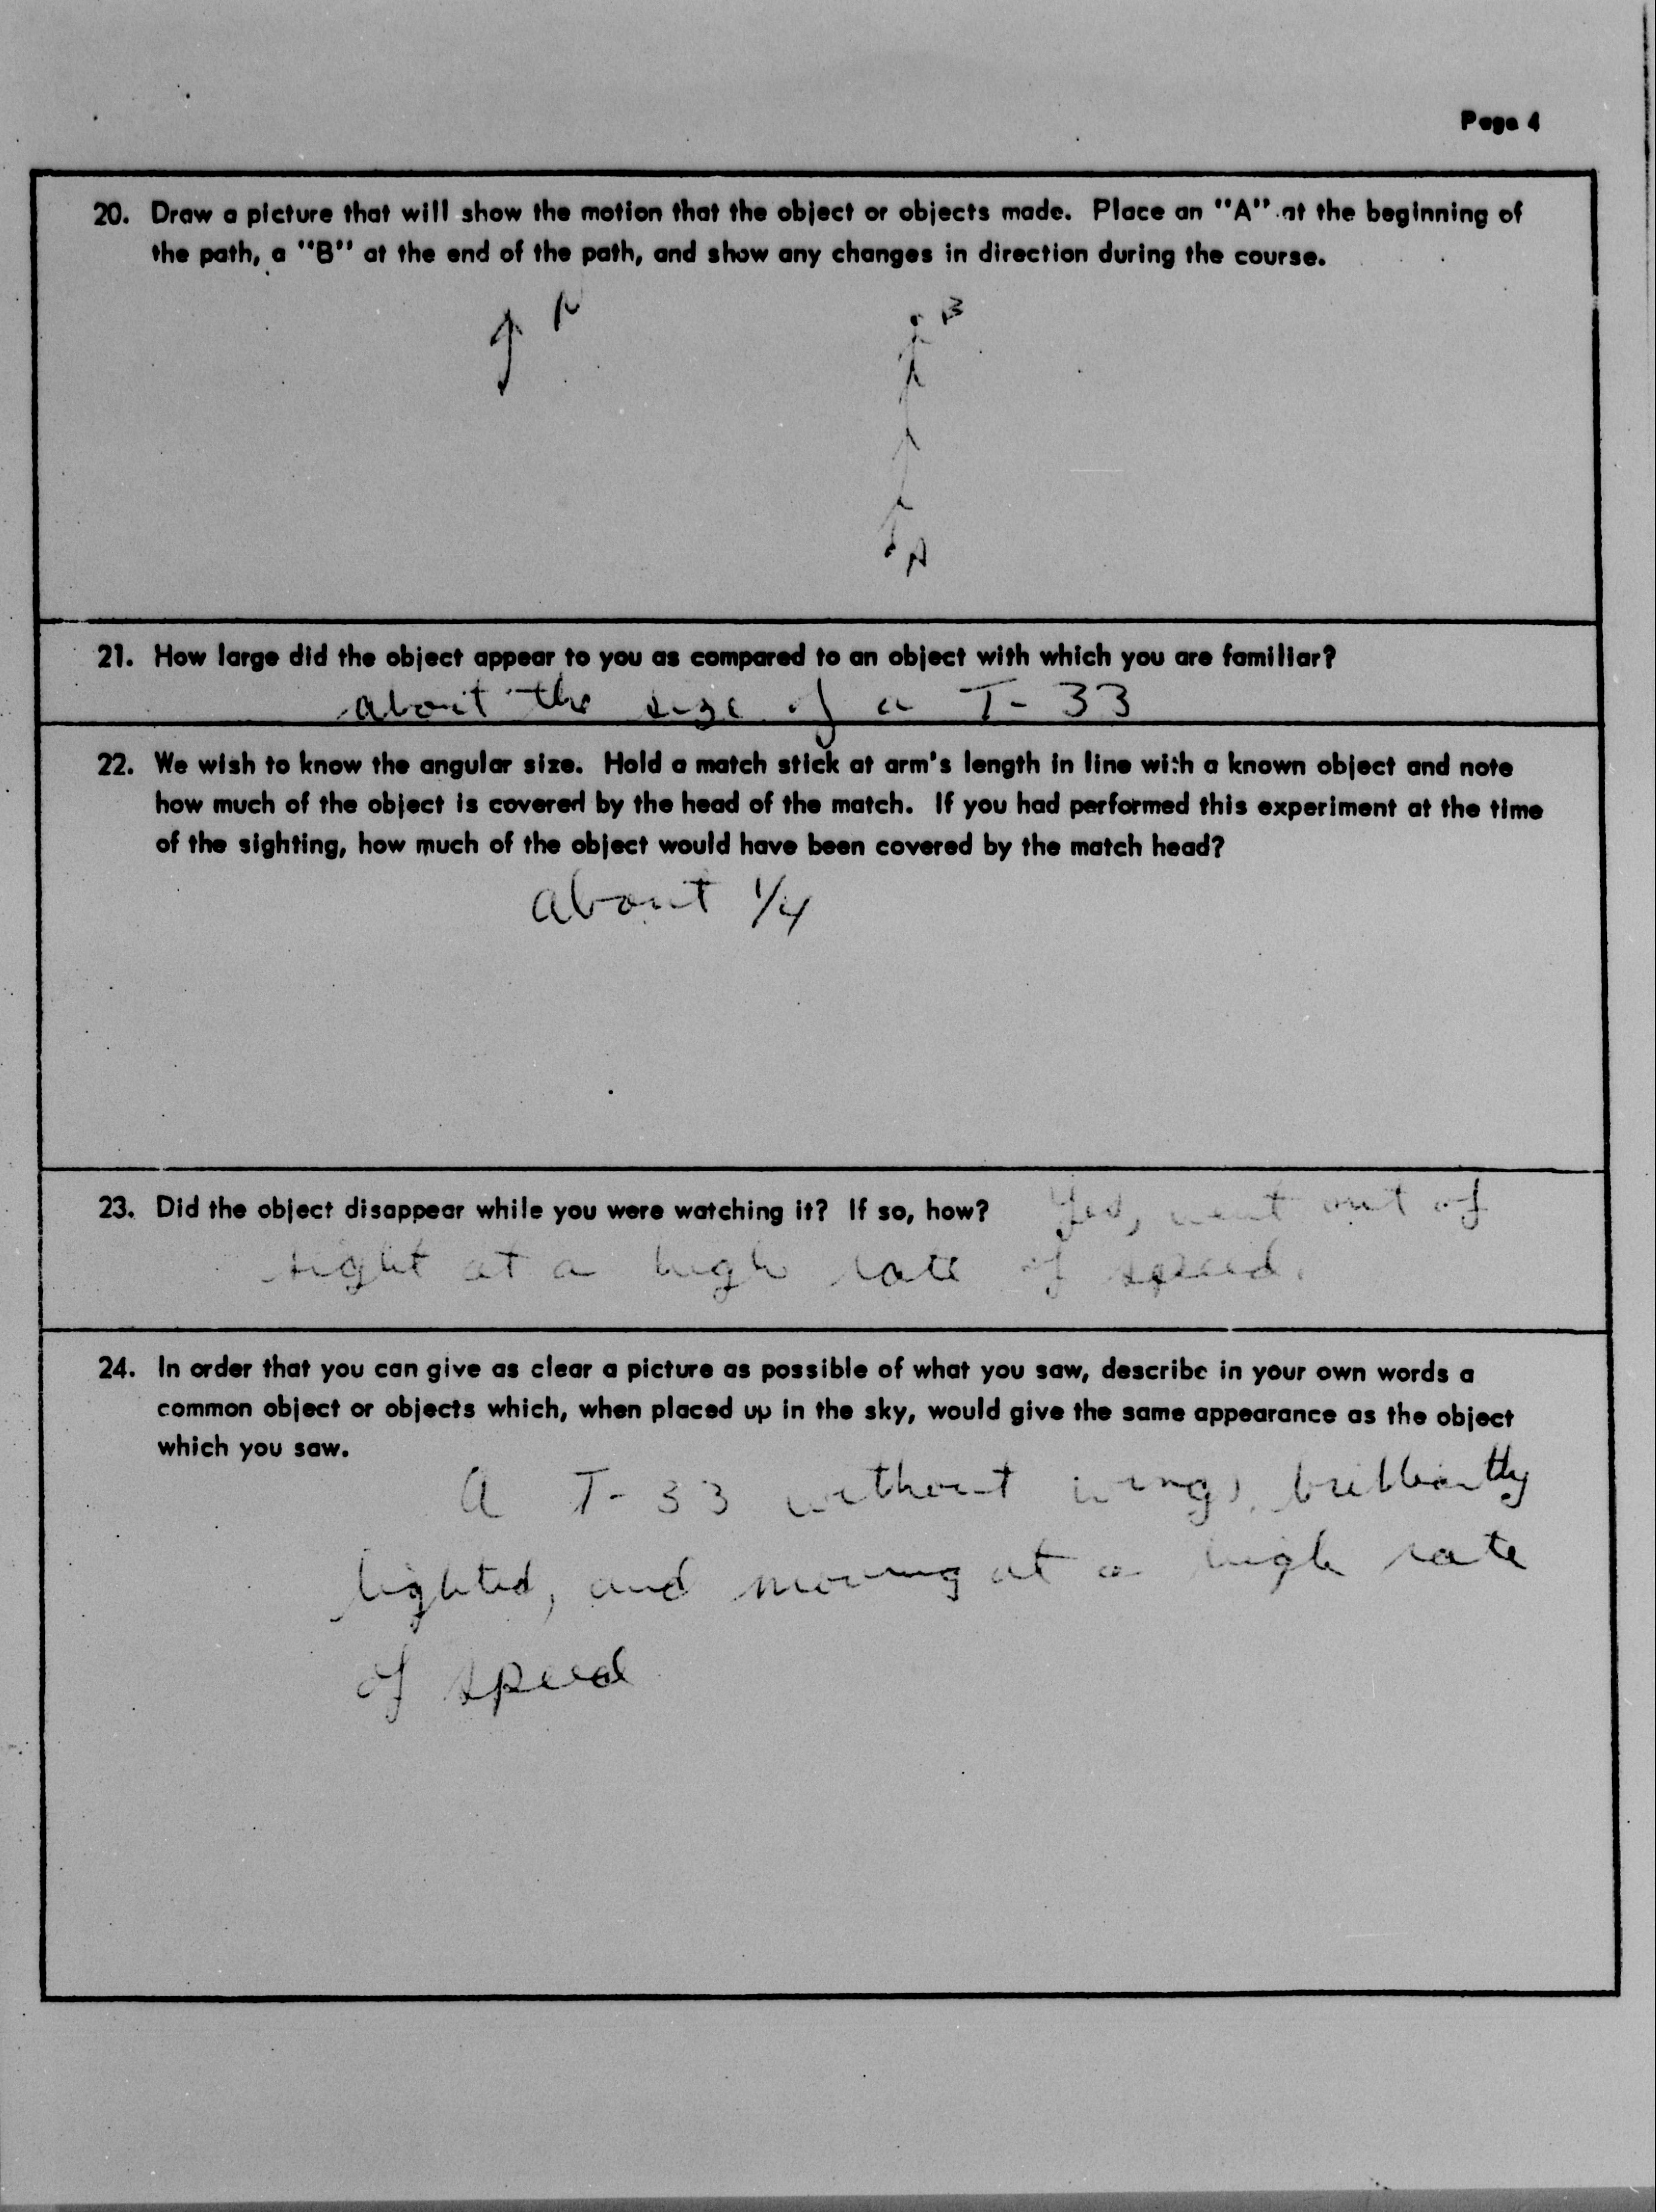 Page 4
20. Draw a picture that will show the motion that the object or objects made. Place an "A" at the beginning of
the path, a "B" at the end of the path, and show any changes in direction during the course.
N
B
A
21. How large did the object appear to you as compared to an object with which you are familiar?
about the size of a T-33
22. We wish to know the angular size. Hold a match stick at arm's length in line with a known object and note
how much of the object is covered by the head of the match. If you had performed this experiment at the time
of the sighting, how much of the object would have been covered by the match head?
about 1/4
23. Did the object disappear while you were watching it? If so, how? Yes, went out of
sight at a high rate of speed.
24. In order that you can give as clear a picture as possible of what you saw, describe in your own words a
common object or objects which, when placed up in the sky, would give the same appearance as the object
which you saw.
A T-33 without wings, brilliantly
lighted, and moving at a high rate
of speed